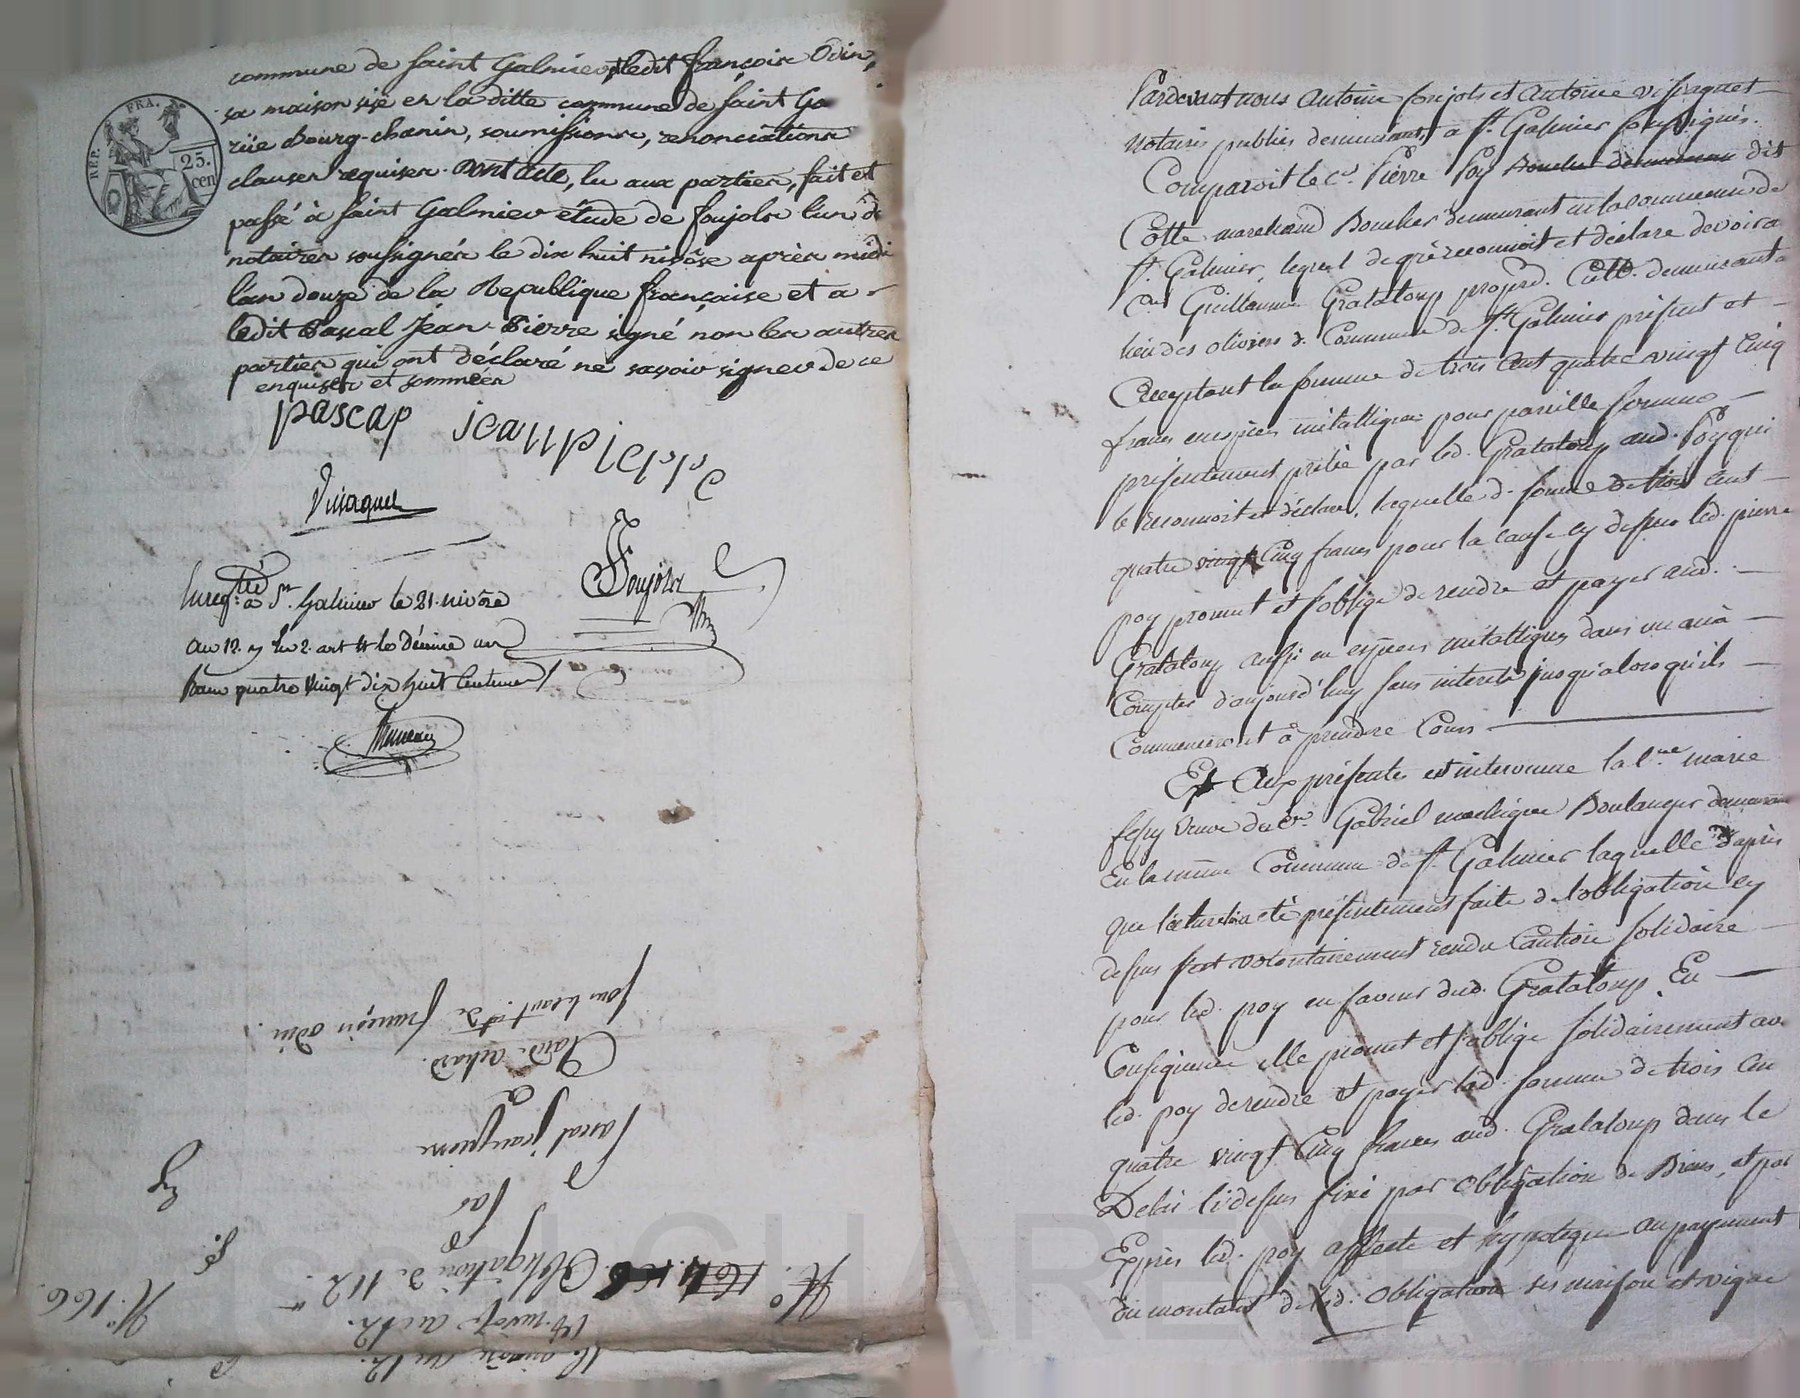 commune de saint Galmier, ledit françois Odin,
sa maison size en la ditte commune de saint Ga
rüe Bourg-chanin, soumissions, rénonciations
clauses requises. Dont acte, lu aux parties, fait et
passé à saint Galmier étude de foujols l'un d
notaires soussignés le dix huit nivôse après midi
l'an douze de la République française et a
ledit Pascal Jean-Pierre signé, non les autres
parties qui ont déclaré ne savoir signer de ce
enquises et sommées
REP. FRA.
25.
cen
pascap jeanpierre
Foujols
à St. Galmier le 21. nivôse
an 12. le décime un
franc quatre vingt dix huit centimes
françois odin.
Pascal jeanpierre
à
par
Obligation d. 112.
N.° 164
N.° 166.
Pardevant nous Antoine foujols et Antoine vissaguet
Notaires publics demeurants à St. Galmier soussignés.
Comparoit le Cen. Pierre Poy dit
Cotte marchand Boucher demeurant en la commune de
St. Galmier, lequel de gré reconnoit et déclare devoir a
Cen Guillaume Grataloup propred. Cultr. demeurant a
lieu des oliviers d. Commune de St. Galmier présent et
acceptant la somme de trois cent quatre vingt cinq
francs en espèces métalliques pour pareille somme
présentement prêtée par led. Grataloup aud. Poy qui
le reconnoit et déclare, laquelle d. somme de trois cent
quatre vingt cinq francs pour la cause cy dessus led. pierre
poy promet et s'oblige de rendre et payer aud.
Grataloup aussi en espèces métalliques dans un an à
Compter d'aujourd'huy sans interets jusqu'alors qu'ils
Commenceront à prendre Cours
Et Aux présentes est intervenue la Cne. marie
veuve du Cen. Gabriel Boulanger demeurant
En la même Commune de St. Galmier laquelle d'après
que lecture lui a été présentement faite de l'obligation cy
dessus s'est volontairement rendue Caution solidaire
pour led. poy en faveur dud. Grataloup. En
Conséquence elle promet et s'oblige solidairement av
led. poy de rendre et payer lad. somme de trois cen
quatre vingt Cinq francs aud. Grataloup dans le
Delai ci dessus fixé par obligation de Biens, et par
Exprès led. poy affecte et hypotèque au payement
du montant de lad. obligation ses maison et vigne